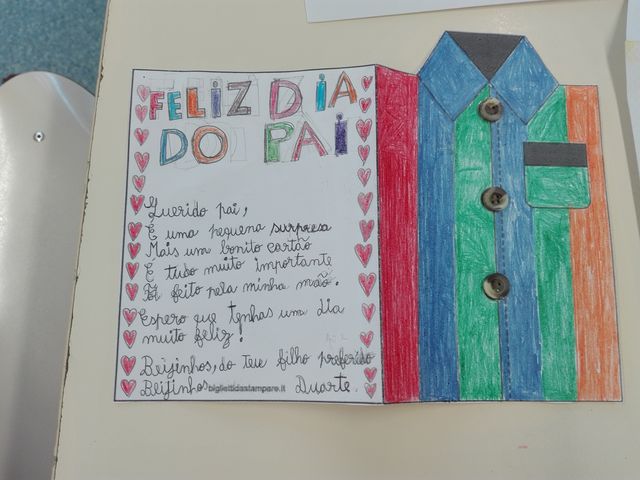 FELIZ DIA
DO PAI
Querido pai,
É uma pequena surpresa
Mais um bonito cartão
É tudo muito importante
Foi feito pela minha mão.
Espero que tenhas um dia
muito feliz!
Beijinhos, do teu filho preferido
Beijinhos bigliettidastampare.it Duarte.